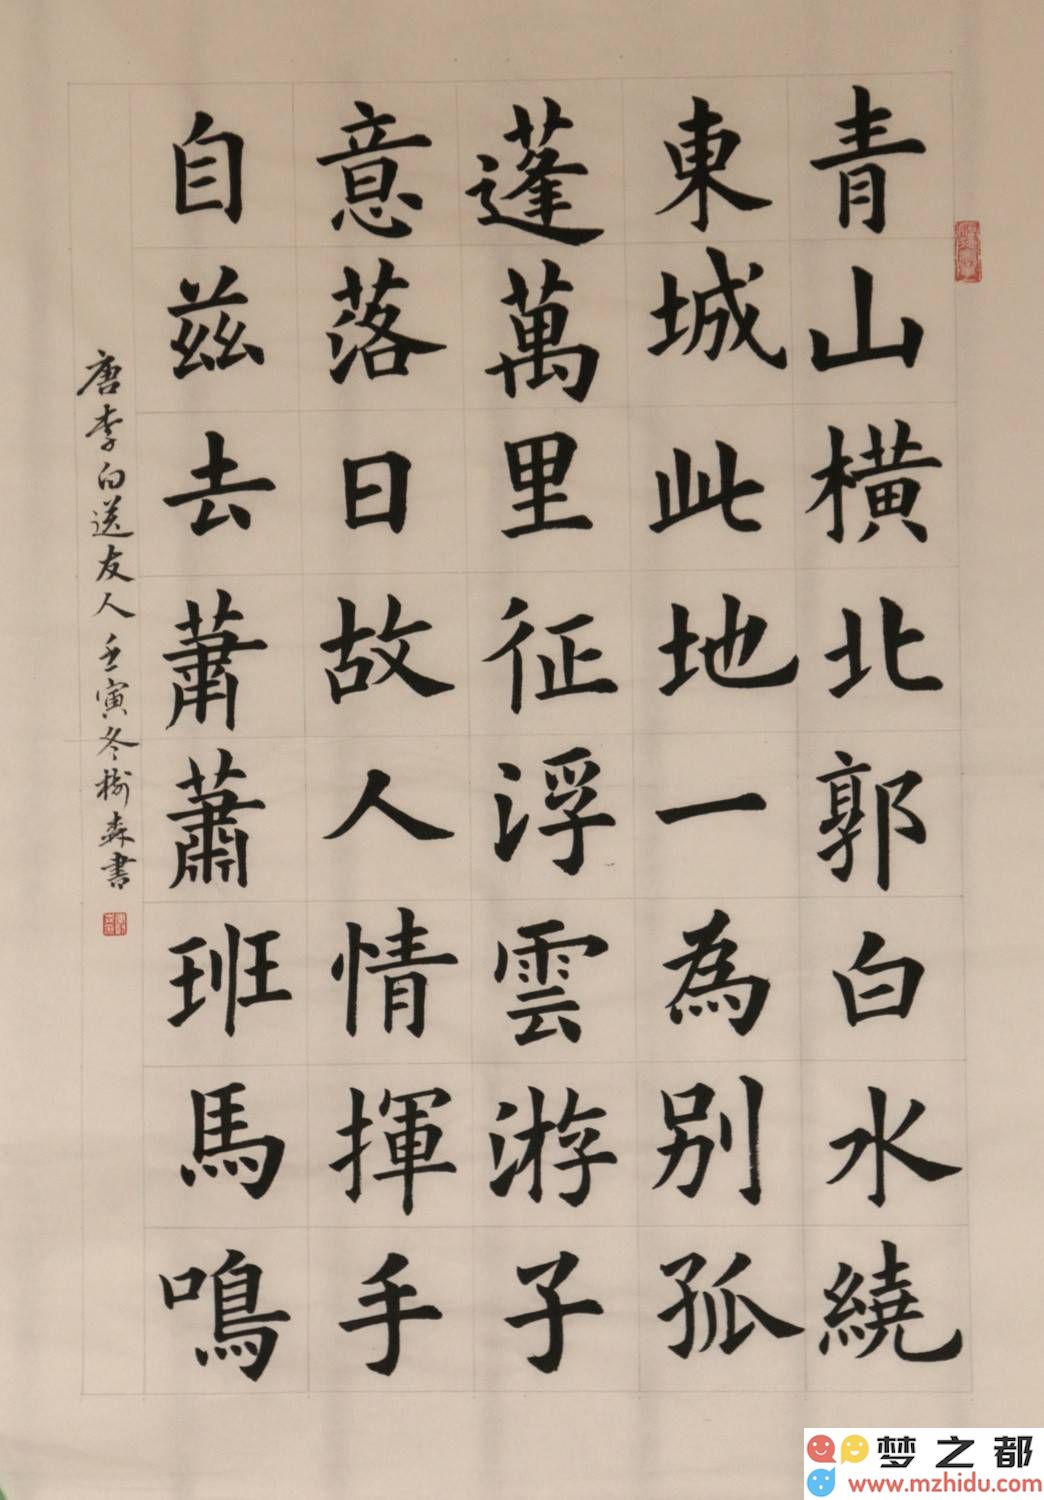 青山橫北郭白水繞
東城此地一為別孤
蓬萬里征浮雲游子
意落日故人情揮手
自茲去蕭蕭班馬鳴
唐李白送友人壬寅冬樹森書
梦之都
www.mzhidu.com